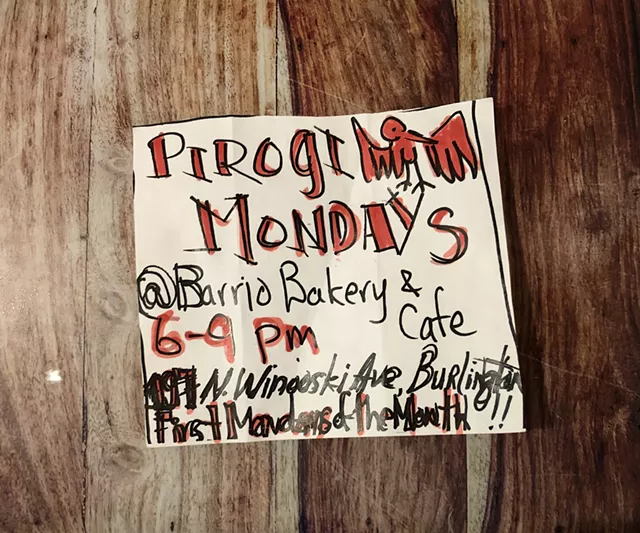 PIROGI
MONDAYS
@Barrio Bakery &
Cafe
6-9 pm
197 N. Winooski Ave, Burlington
First Mondays of the Month !!